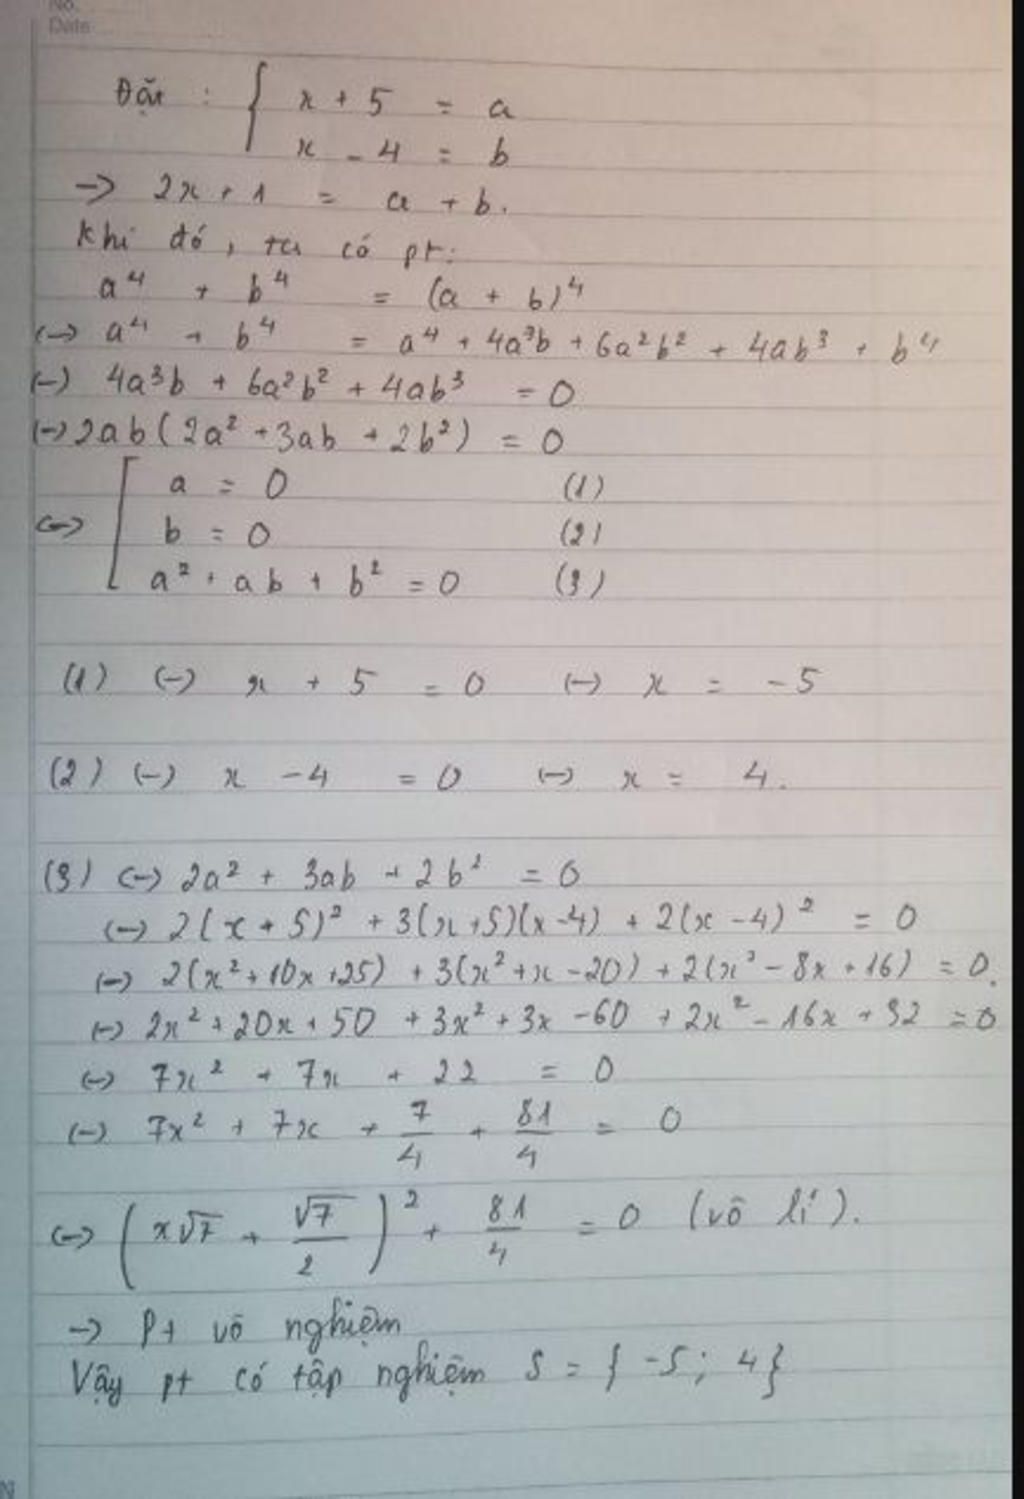 No.
Date
Đặt : { x + 5 = a
x - 4 = b
-> 2x + 1 = a + b.
Khi đó, ta có pt:
a⁴ + b⁴ = (a + b)⁴
<-> a⁴ + b⁴ = a⁴ + 4a³b + 6a²b² + 4ab³ + b⁴
<-> 4a³b + 6a²b² + 4ab³ = 0
<-> 2ab(2a² + 3ab + 2b²) = 0
<-> [ a = 0 (1)
b = 0 (2)
a² + ab + b² = 0 (3)
(1) <-> x + 5 = 0 <-> x = -5
(2) <-> x - 4 = 0 <-> x = 4.
(3) <-> 2a² + 3ab + 2b² = 0
<-> 2(x + 5)² + 3(x+5)(x-4) + 2(x-4)² = 0
<-> 2(x² + 10x + 25) + 3(x² + x - 20) + 2(x² - 8x + 16) = 0.
<-> 2x² + 20x + 50 + 3x² + 3x - 60 + 2x² - 16x + 32 = 0
<-> 7x² + 7x + 22 = 0
<-> 7x² + 7x + 7/4 + 81/4 = 0
<-> (x√7 + √7/2)² + 81/4 = 0 (vô lí).
-> Pt vô nghiệm
Vậy pt có tập nghiệm S = { -5; 4}
N